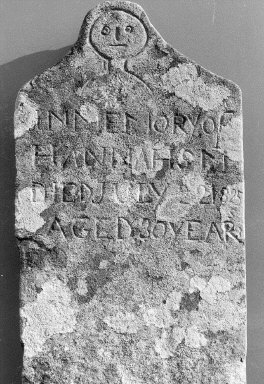 IN MEMORY OF
HANNAH
DIED JULY
AGED 30 YEAR